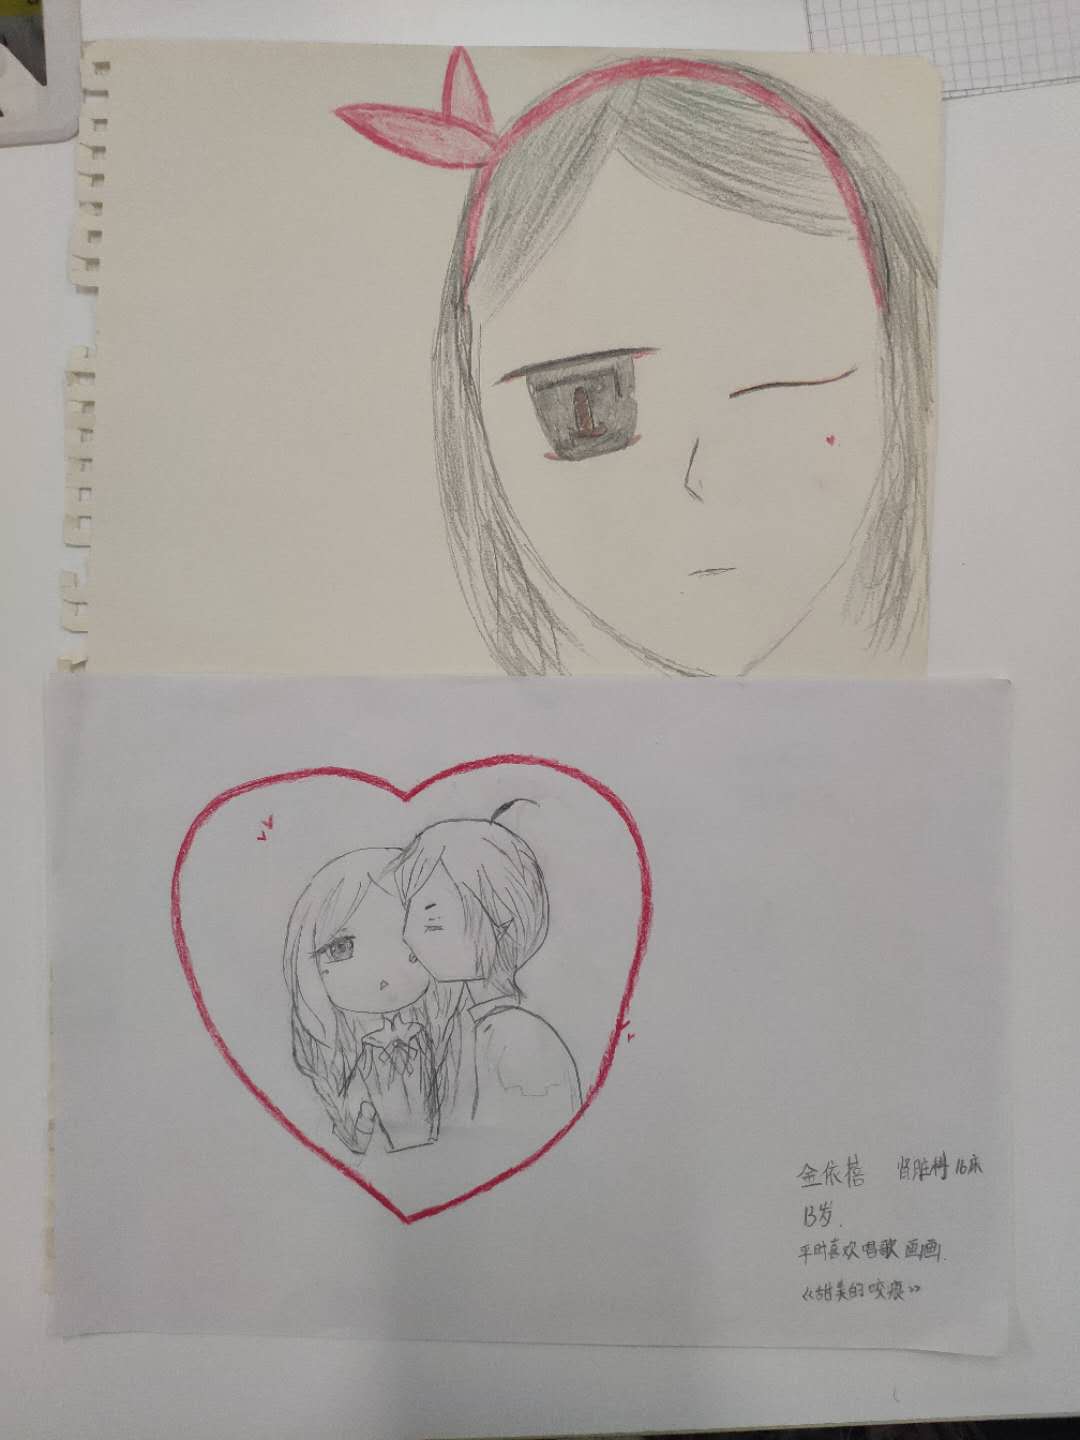 金依蓓 肾脏科 16床
13岁.
平时喜欢唱歌 画画.
《甜美的咬痕》